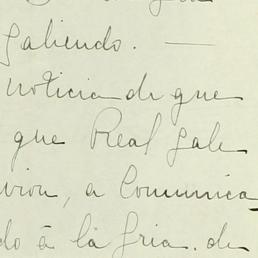 galiendo. —
noticia de que
que Real gale
vion, a Comunica
do á la Gria. de